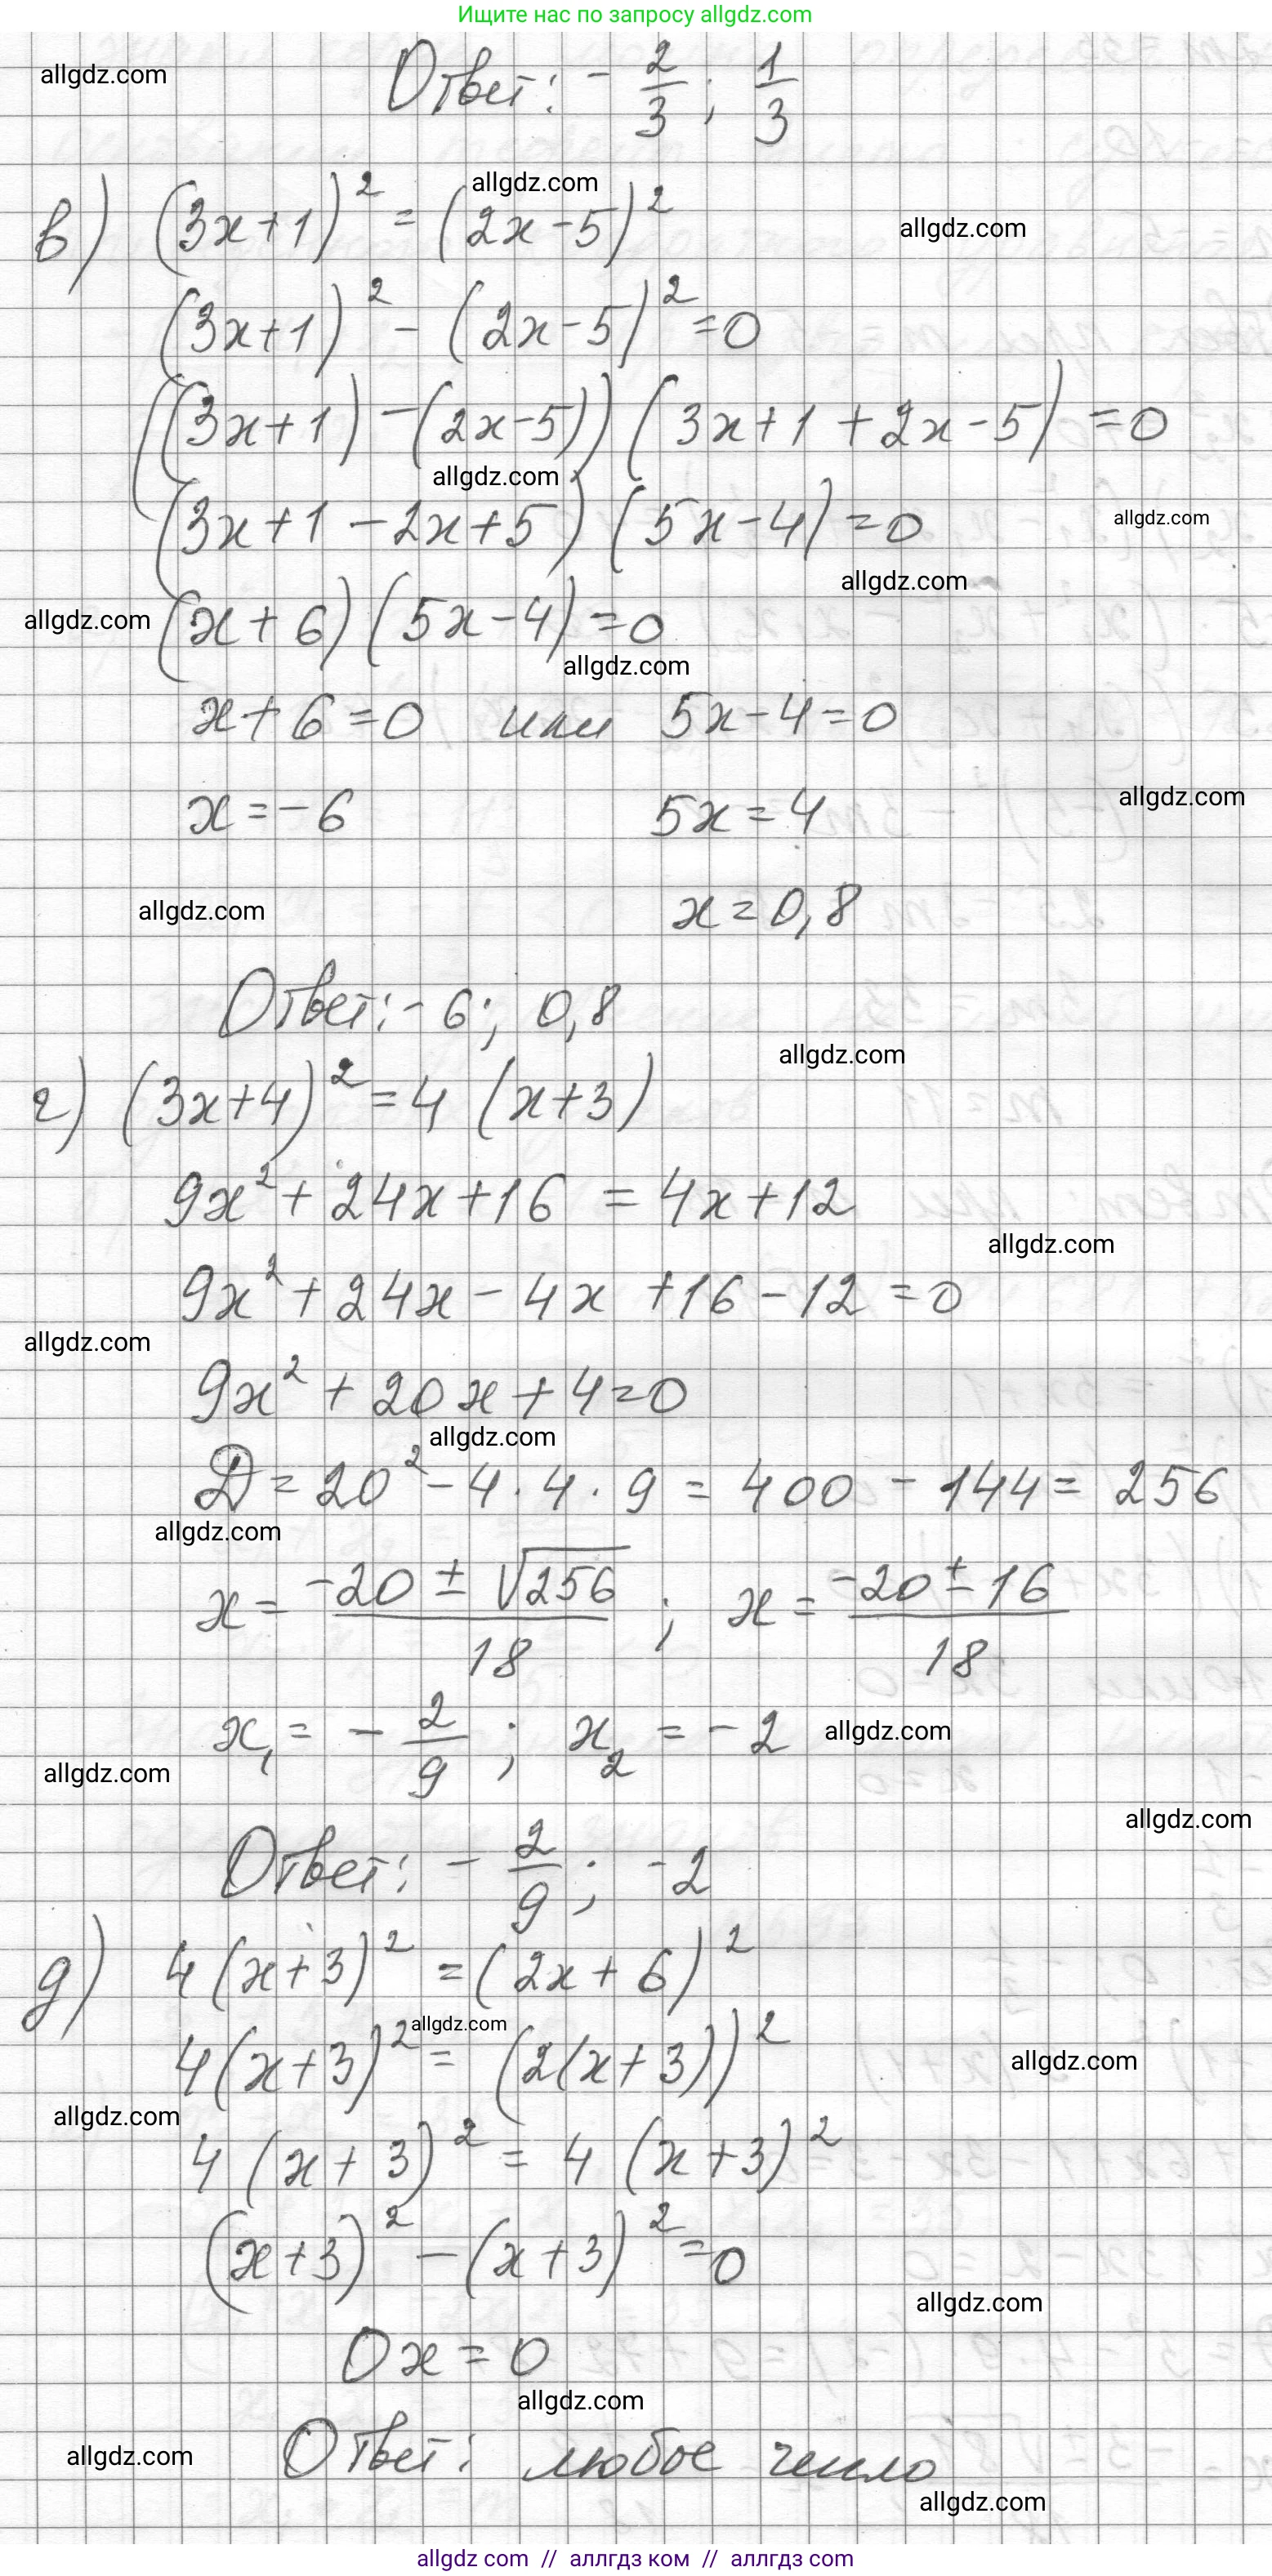 Ищите нас по запросу allgdz.com
allgdz.com
Ответ: - 2/3; 1/3
allgdz.com
в) (3x+1)² = (2x-5)²
allgdz.com
(3x+1)² - (2x-5)² = 0
((3x+1) - (2x-5)) (3x+1 + 2x-5) = 0
allgdz.com
(3x+1 - 2x+5) (5x-4) = 0
allgdz.com
allgdz.com
allgdz.com
(x+6) (5x-4) = 0
allgdz.com
x+6 = 0 или 5x-4 = 0
x = -6 5x = 4
allgdz.com
allgdz.com
x = 0,8
Ответ: -6; 0,8
allgdz.com
г) (3x+4)² = 4 (x+3)
9x² + 24x + 16 = 4x + 12
allgdz.com
9x² + 24x - 4x + 16 - 12 = 0
allgdz.com
9x² + 20x + 4 = 0
allgdz.com
D = 20² - 4 · 4 · 9 = 400 - 144 = 256
allgdz.com
x = (-20 ± √256)/18; x = (-20 ± 16)/18
x₁ = - 2/9; x₂ = -2
allgdz.com
allgdz.com
allgdz.com
Ответ: - 2/9; -2
д) 4(x+3)² = (2x+6)²
allgdz.com
4(x+3)² = (2(x+3))²
allgdz.com
allgdz.com
4 (x+3)² = 4 (x+3)²
(x+3)² - (x+3)² = 0
allgdz.com
0x = 0
allgdz.com
Ответ: любое число
allgdz.com
allgdz.com
allgdz com // аллгдз ком // аллгдз com